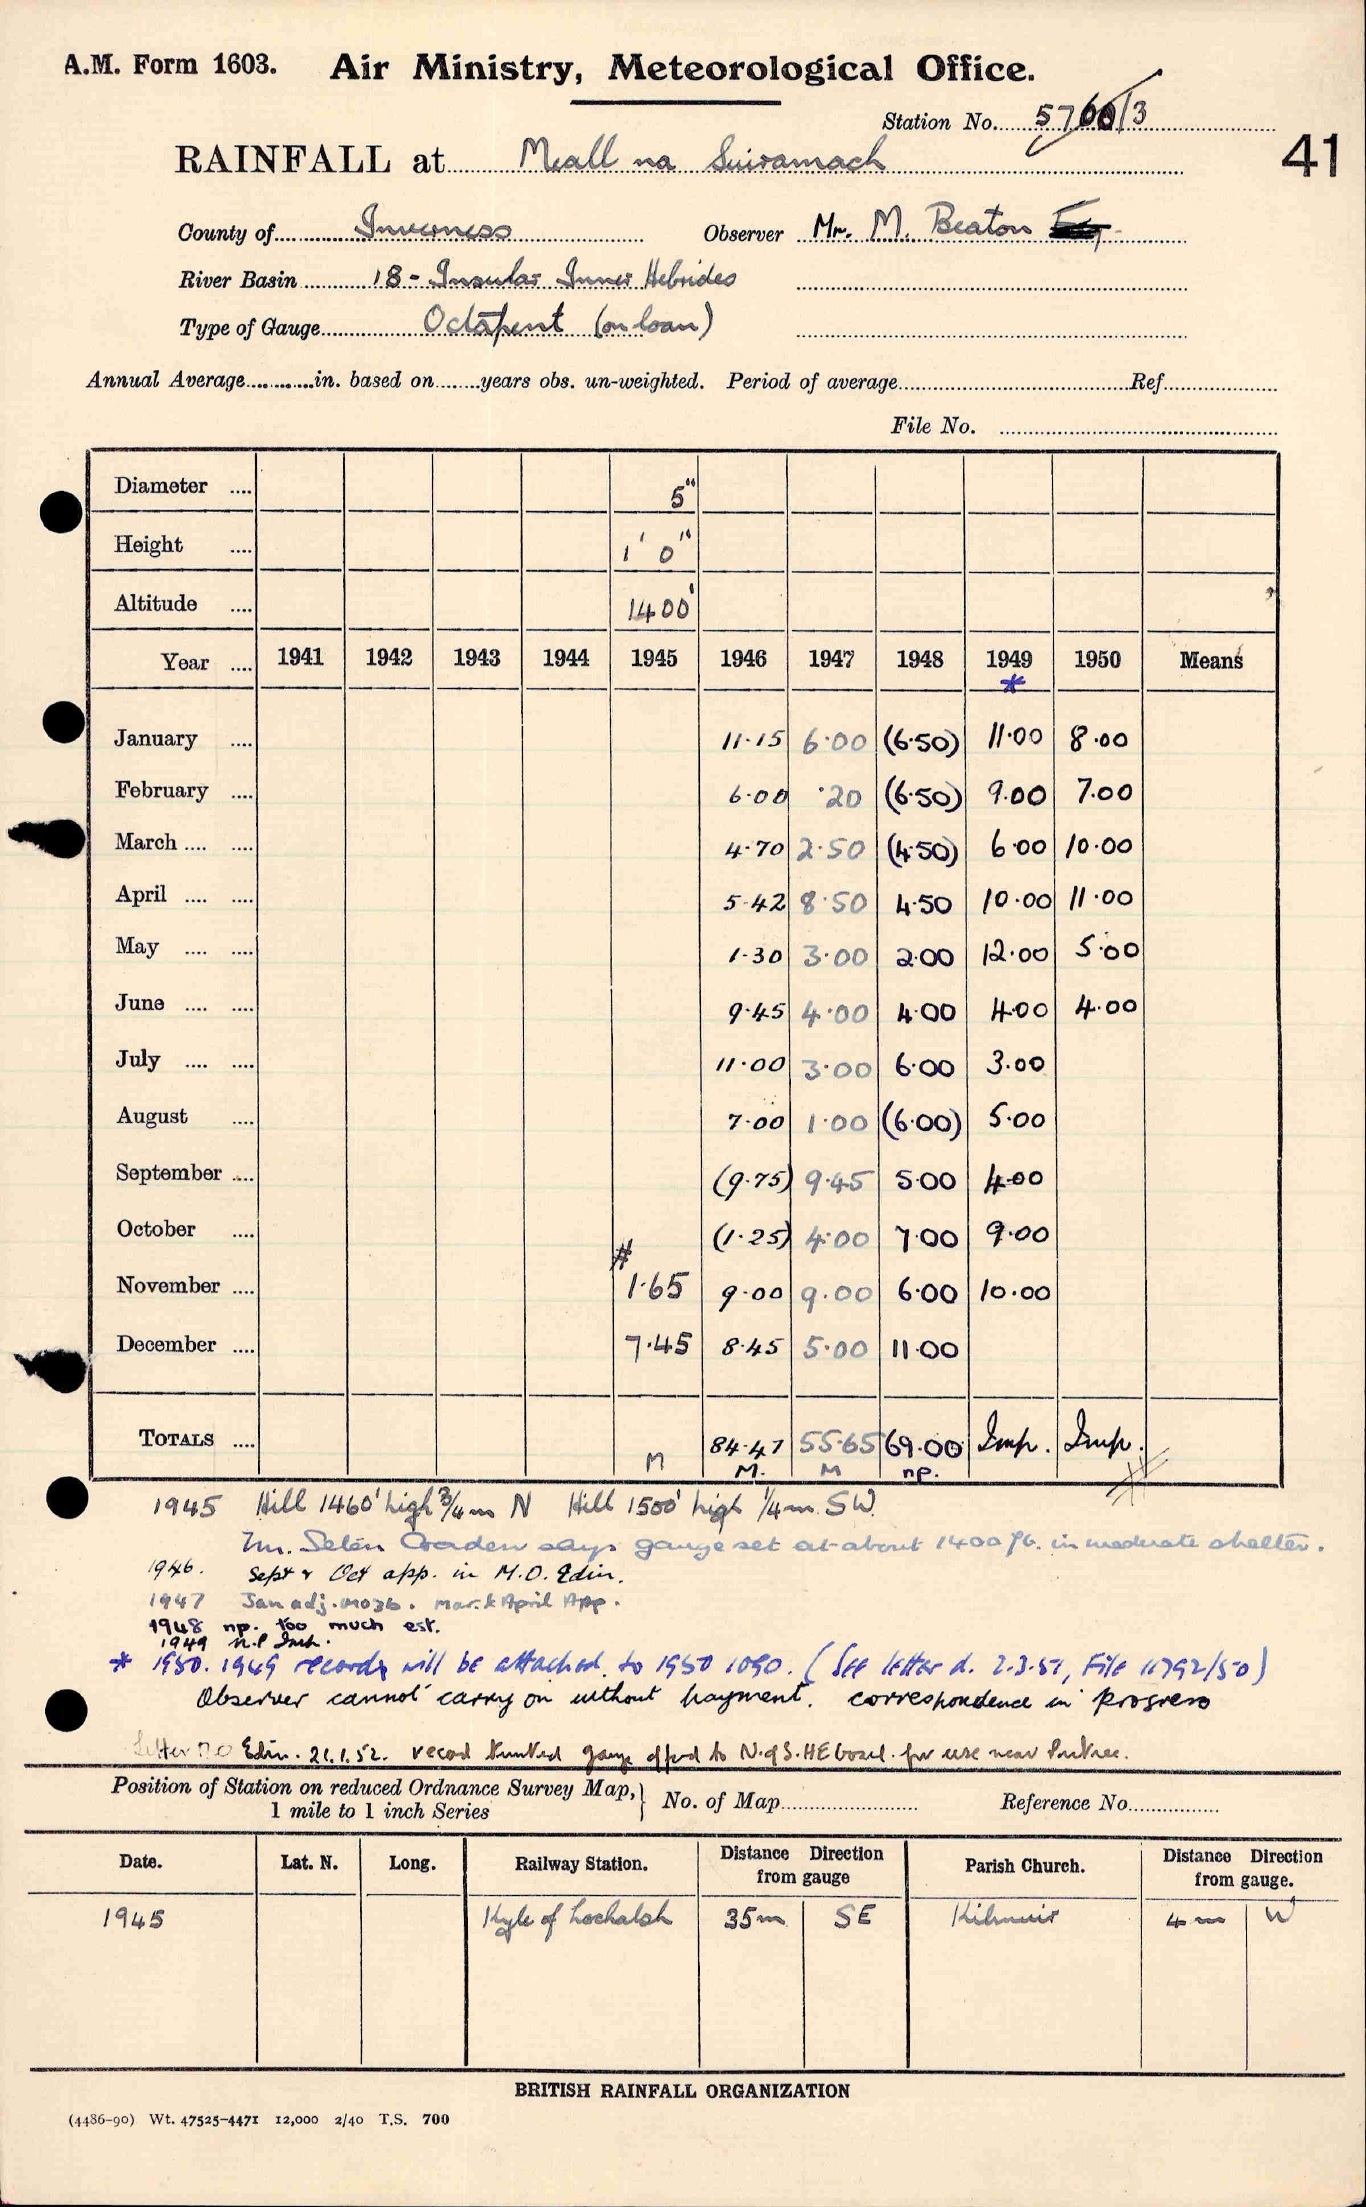 A.M. Form 1603. Air Ministry, Meteorological Office.
Station No. 5760/3
41
RAINFALL at Meall na Suiramach
County of Inverness Observer Mr. M. Beaton
River Basin 18 - Insular Inner Hebrides
Type of Gauge Octapent (on loan)
Annual Average............in. based on.......years obs. un-weighted. Period of average Ref.
File No.
Diameter .... 5"
Height .... 1' 0"
Altitude .... 1400'
Year .... 1941 1942 1943 1944 1945 1946 1947 1948 1949 1950 Means
*
January .... 11.15 6.00 (6.50) 11.00 8.00
February .... 6.00 .20 (6.50) 9.00 7.00
March .... .... 4.70 2.50 (4.50) 6.00 10.00
April .... .... 5.42 8.50 4.50 10.00 11.00
May .... .... 1.30 3.00 2.00 12.00 5.00
June .... .... 9.45 4.00 4.00 4.00 4.00
July .... .... 11.00 3.00 6.00 3.00
August .... 7.00 1.00 (6.00) 5.00
September .... (9.75) 9.45 5.00 4.00
October .... (1.25) 4.00 7.00 9.00
#
November .... 1.65 9.00 9.00 6.00 10.00
December .... 7.45 8.45 5.00 11.00
TOTALS .... 84.47 55.65 69.00 Imp. Imp.
M M. M np.
1945 Hill 1460' high 3/4m N Hill 1500' high 1/4m SW
says gauge set at about 1400 ft. in moderate shelter.
1946. Sept & Oct app. in M.O. Edin.
1947 Jan adj. MO3b. Mar. & April App.
1948 np. too much est.
1949 n.p
* 1950. 1949 records will be attached to 1950 1090. (See letter d. 2.3.51, File 11792/50)
Observer cannot carry on without payment. correspondence in progress
Letter M.O Edin. 21.1.52. record gauge to N. of S. HE board for use near Portree.
Position of Station on reduced Ordnance Survey Map, } No. of Map Reference No.
1 mile to 1 inch Series
Date. Lat. N. Long. Railway Station. Distance from gauge Direction Parish Church. Distance from gauge. Direction
1945 Kyle of Lochalsh 35m SE Kilmuir 4m W
BRITISH RAINFALL ORGANIZATION
(4486-90) Wt. 47525-4471 12,000 2/40 T.S. 700